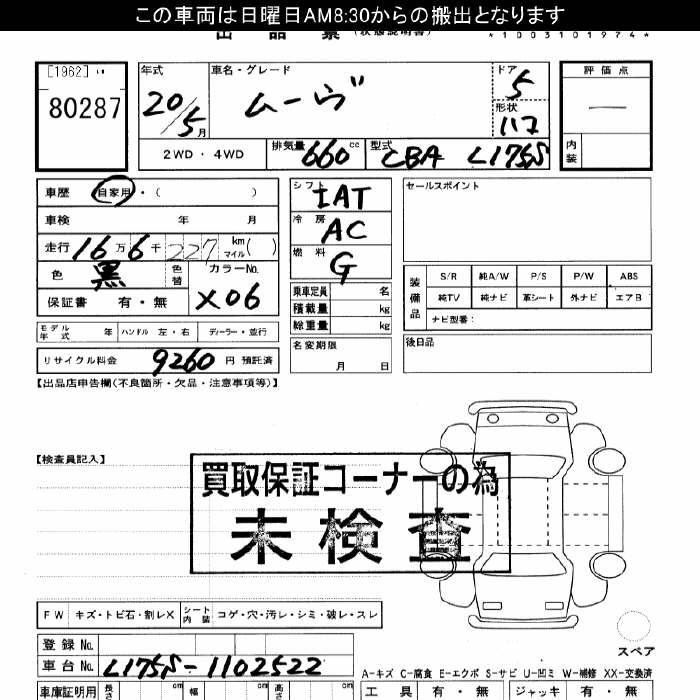 この車両は日曜日AM8:30からの搬出となります
出 品 票 (状態説明書)
*1003101974*
[1962]
80287
年式
20/5月
車名・グレード
ムーヴ
ドア
5
形状
評価点
内装
2WD ・ 4WD
排気量 660 cc
型式 CBA L175S
車歴 自家用・( )
車検 年 月
走行 16万6千227 km マイル( )
色 黒 色替
カラーNo.
X06
保証書 有・無
モデル年式 年 ハンドル 左・右 ディーラー・並行
リサイクル料金 9260 円 預託済
シフト IAT
冷房 AC
燃料 G
乗車定員 名
積載量 kg
総重量 kg
名変期限
月 日
セールスポイント
装備品
S/R 純A/W P/S P/W ABS
純TV 純ナビ 革シート 外ナビ エアB
ナビ型番:
後日品
【出品店申告欄(不良箇所・欠品・注意事項等)】
【検査員記入】
買取保証コーナーの為
未検査
FW キズ・トビ石・割レX シート内装 コゲ・穴・汚レ・シミ・破レ・スレ
スペア
登録 No.
車台 No. L175S-1102522
A-キズ C-腐食 E-エクボ S-サビ U-凹ミ W-補修 XX-交換済
車庫証明用 長さ cm 幅 cm 高さ cm
工具 有・無 ジャッキ 有・無